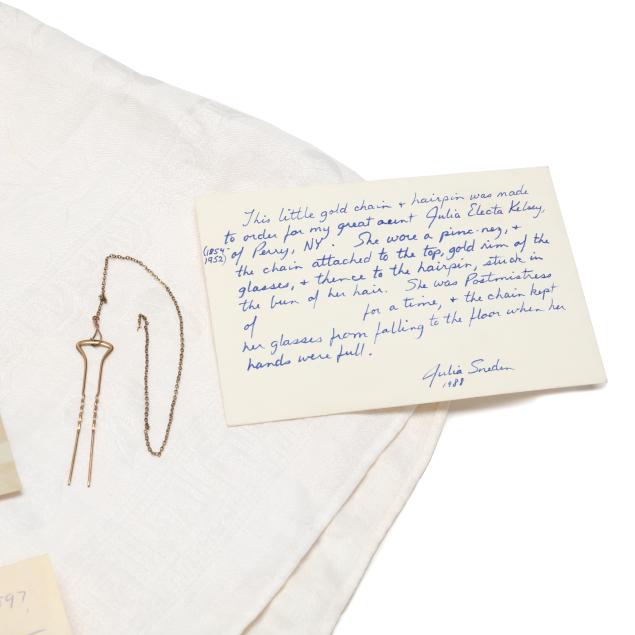 This little gold chain + hairpin was made
to order for my great aunt Julia Electa Kelsey,
(1854-
1952) of Perry, NY. She wore a pinc-nez, +
the chain attached to the top, gold rim of the
glasses, + thence to the hairpin, stuck in
the bun of her hair. She was Postmistress
of for a time, + the chain kept
her glasses from falling to the floor when her
hands were full.
Julia Sneden
1988